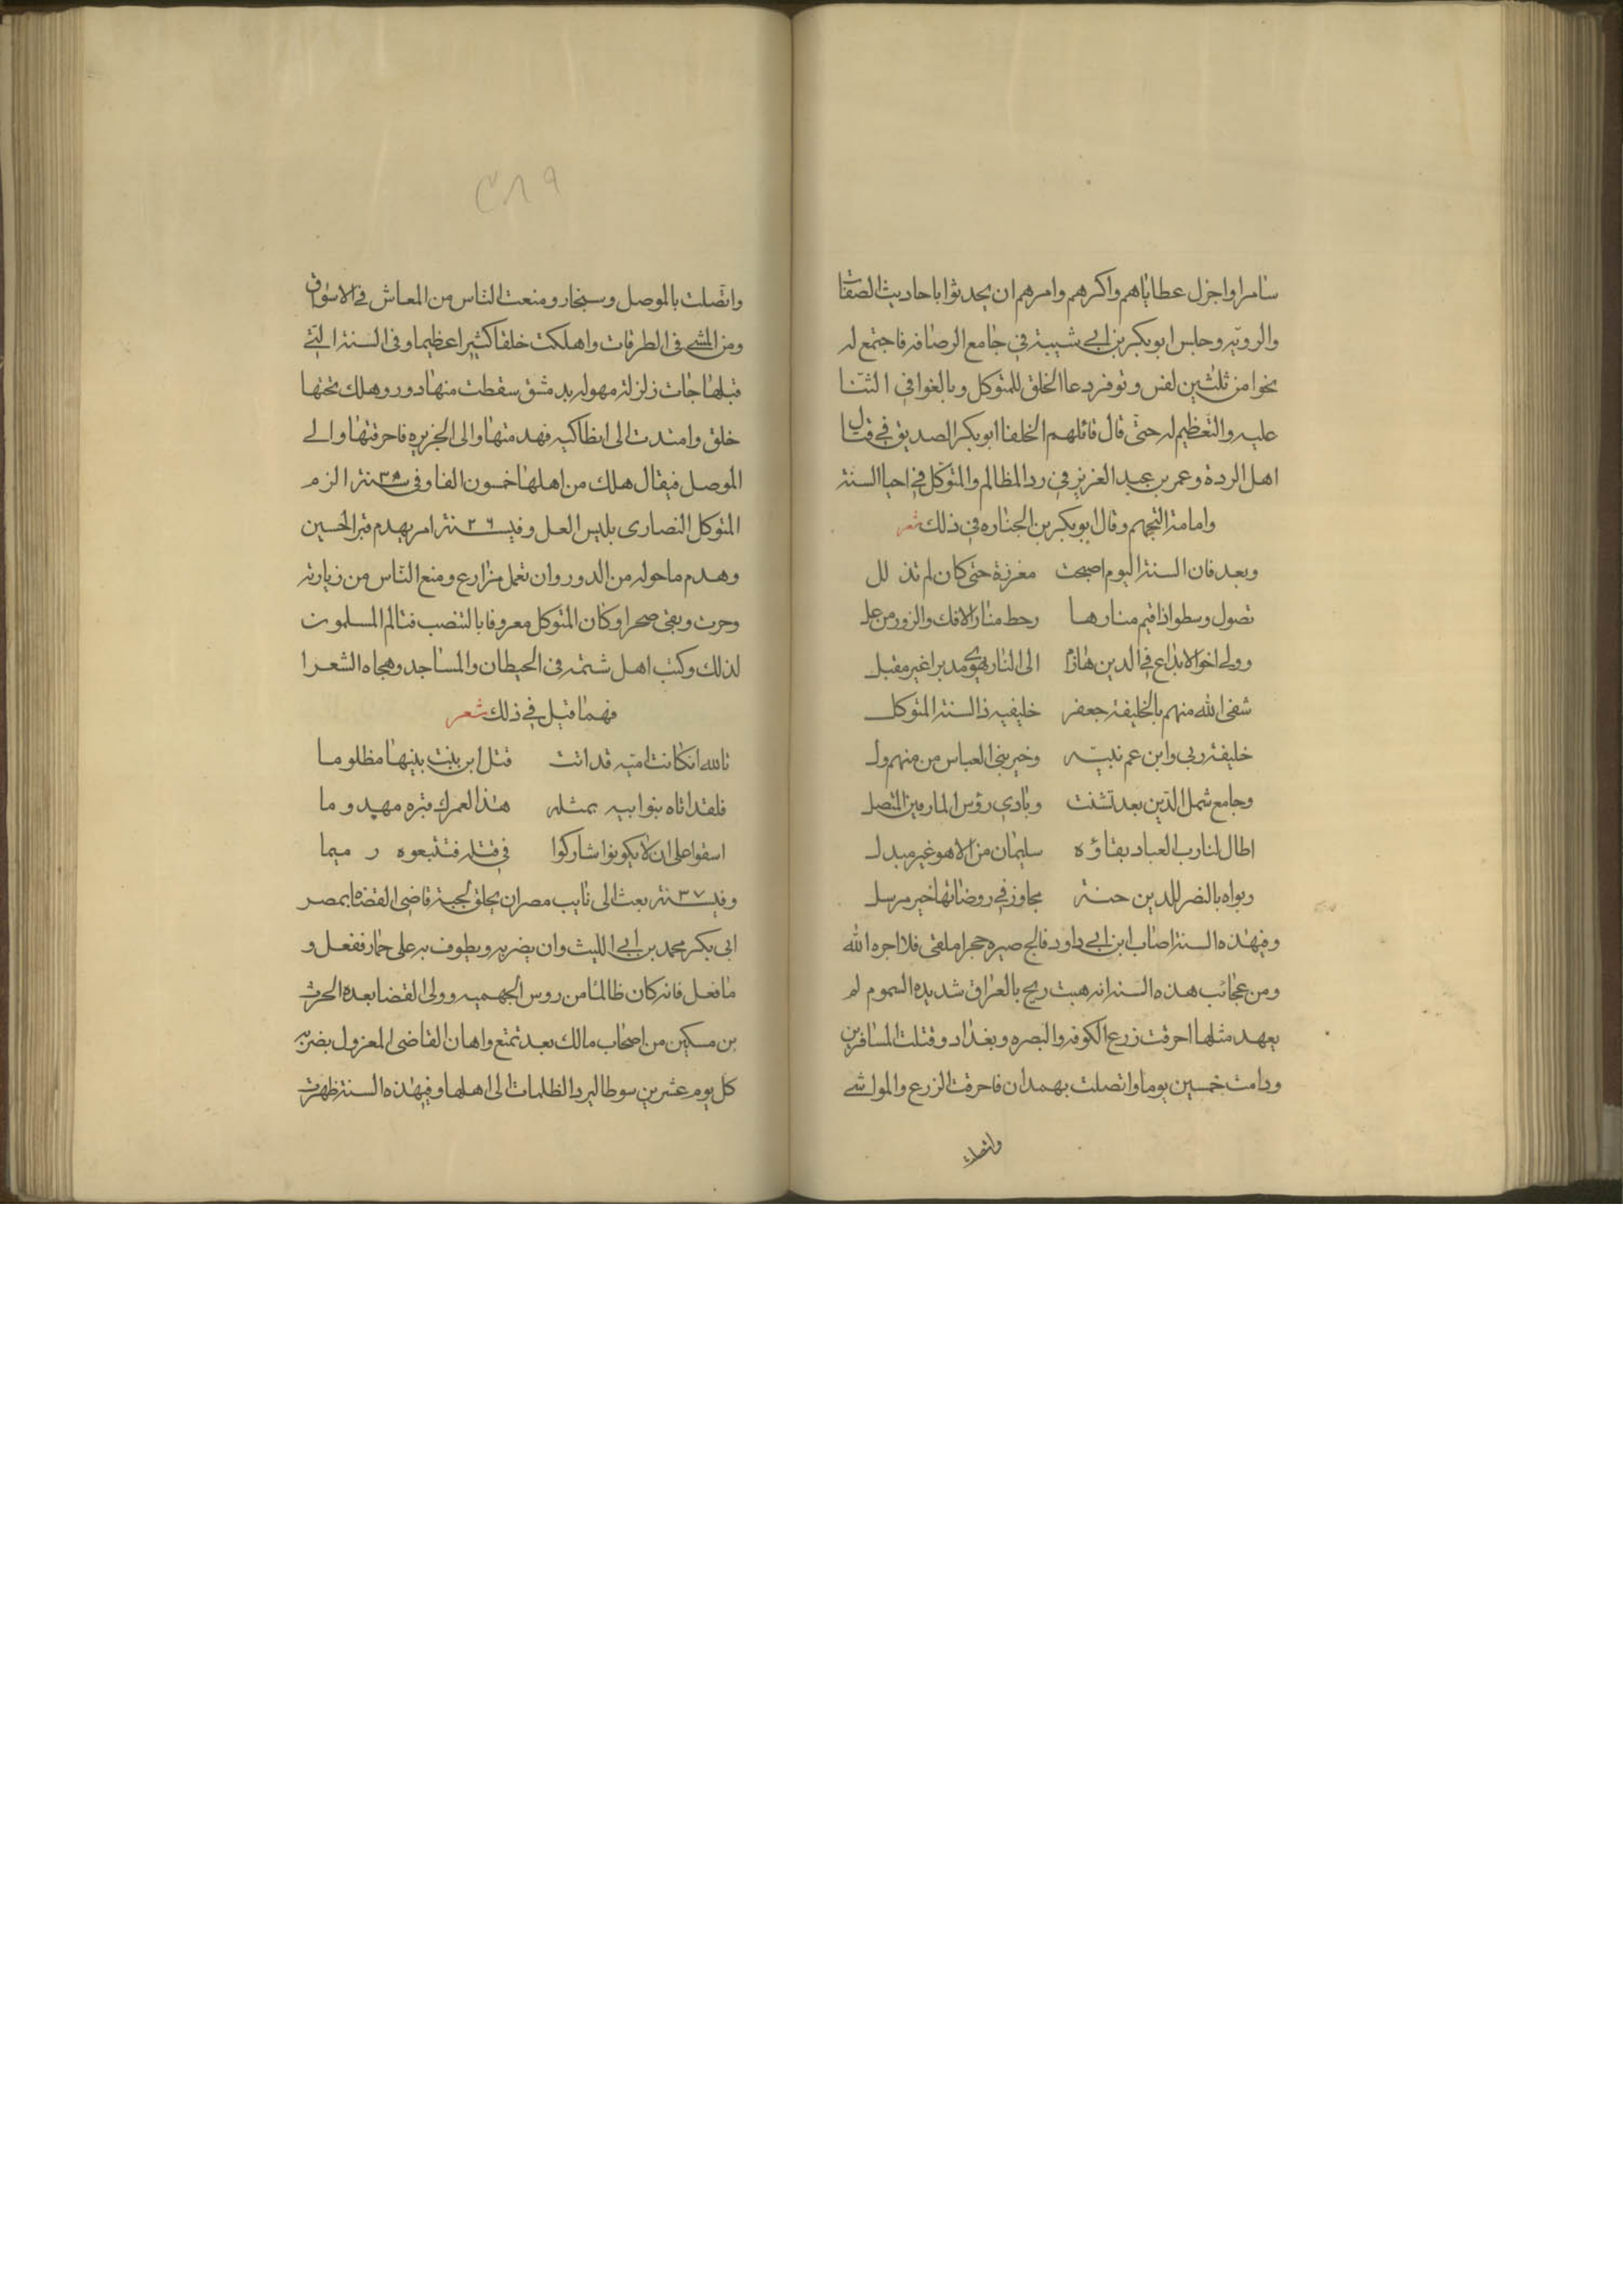 سامرا واجزل عطاياهم واكرمهم وامرهم ان يحدثوا باحاديث الصفات
والرويه وجلس ابو بكر بن ابي شيبة في جامع الرصافه فاجتمع له
نحوا من ثلثين نفس وتوفر دعا الخلق للمتوكل وبالغوا في الثنا
عليه والتعظيم له حتى قال قائلهم الخلفا ابو بكر الصديق في قتال
اهل الردة وعمر بن عبد العزيز في رد المظالم والمتوكل في احيا السنة
وامامة التجهم وقال ابو بكر بن الجناره في ذلك شعر
وبعد فان السنة اليوم اصبحت معززة حتى كان لم تذلل
تصول وسطوا اذا قيم منارها وحط منار الافك والزور من عل
وولى اخو الابداع في الدين هاربا الى النار يهوي مدبرا غير مقبل
شفى الله منهم بالخليفة جعفر خليفيه ذا السنة المتوكل
خليفة ربي وابن عم نبيه وخير بني العباس من منهم ول
وجامع شمل الدين بعد تشتت وبادي رؤس المارقين المتصل
اطال لنا رب العباد بقاؤه سليمان من الاهو غير مبدل
وبواه بالنصر للدين جنة مجاوز في روضاتها خير مرسل
وفي هذه السنة اصاب ابن ابي داود فالج صيره حجرا ملقى فلا اجره الله
ومن عجائب هذه السنه انه هبت ريح بالعراق شديده السموم لم
يعهد مثلها احرقت زرع الكوفه والبصره وبغداد وقتلت المسافرين
ودامت خمسين يوما واتصلت بهمدان فاحرقت الزرع والمواشي
واتصلت
٣٨٩
واتصلت بالموصل وسنجار ومنعت الناس من المعاش في الاسواق
ومن المشي في الطرقات واهلكت خلقا كثيرا عظيما وفي السنة التي
قبلها جات زلزلة مهوله بدمشق سقطت منها دور وهلك تحتها
خلق وامتدت الى انطاكيه فهدمتها والى الجزيره فاحرقتها والى
الموصل فيقال هلك من اهلها خمسون الفا وفي سنة ٣٥ الزم
المتوكل النصارى بلبس العل وفي سنة ٣٦ امر بهدم قبر الحسين
وهدم ما حوله من الدور وان تعمل مزارع ومنع الناس من زيارته
وحرث وبقى صحرا وكان المتوكل معروفا بالتنصب فتالم المسلمون
لذلك وكتب اهل شتمه في الحيطان والمساجد وهجاه الشعرا
فهما قيل في ذلك شعر
تالله ان كانت اميه قد اتت قتل ابن بنت بنيها مظلوما
فلقد اتاه بنوا ابيه بمثله هذا لعمرك قبره مهدوما
اسفوا على ان لا يكونوا شاركوا في قتله فتتبعوه رميما
وفي سنة ٣٧ بعث الى نايب مصر ان يحلق لحية قاضي القضاه بمصر
ابي بكر محمد بن ابي الليث وان يضربه ويطوف به على حمار ففعل و
ما فعل فانه كان ظالما من روس الجهميه وولى القضا بعده الحرث
بن مسكين من اصحاب مالك بعد تمنع واهان القاضي المعزول بضربه
كل يوم عشرين سوطا ليرد الظلمات الى اهلها وفي هذه السنة ظهرت